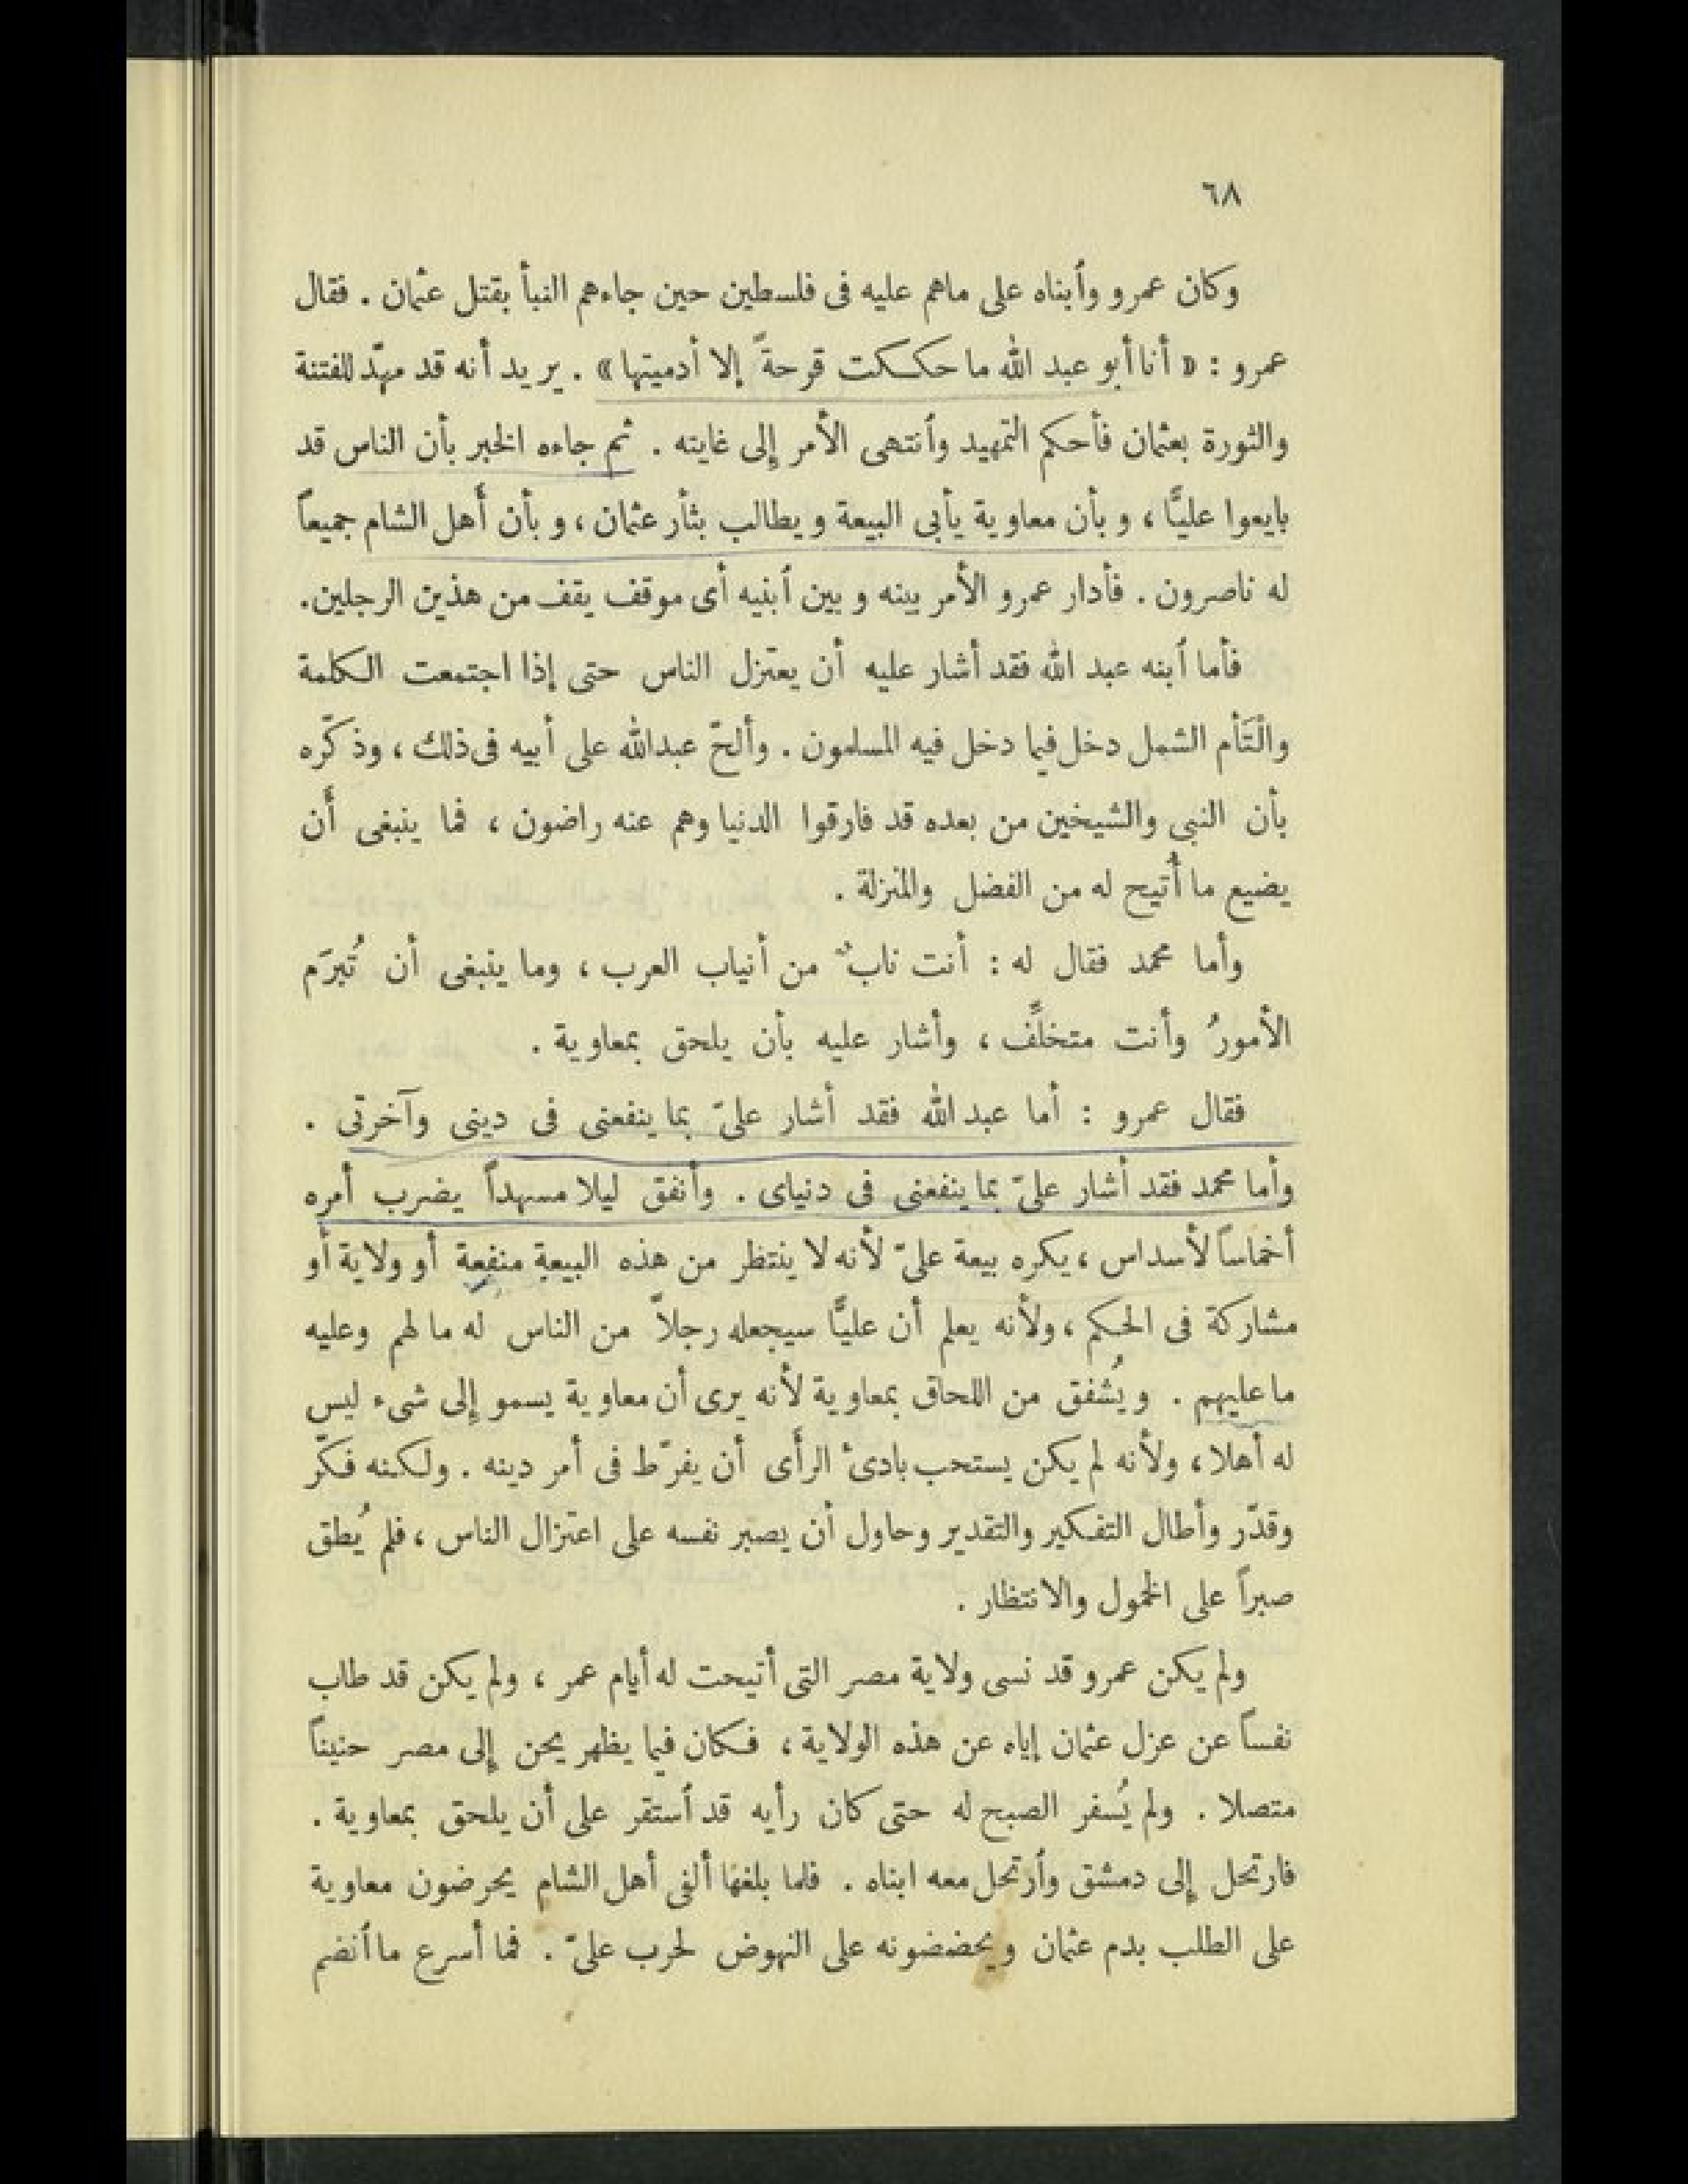 ٦٨
وكان عمرو وٱبناه على ماهم عليه فى فلسطين حين جاءهم النبأ بقتل عثمان . فقال
عمرو : « أنا أبو عبد الله ما حككت قرحةً إلا أدميتها » . يريد أنه قد مهّد للفتنة
والثورة بعثمان فأحكم التمهيد وٱنتهى الأمر إلى غايته . ثم جاءه الخبر بأن الناس قد
بايعوا عليًّا ، وبأن معاوية يأبى البيعة ويطالب بثأر عثمان ، وبأن أهل الشام جميعاً
له ناصرون . فأدار عمرو الأمر بينه وبين ٱبنيه أى موقف يقف من هذين الرجلين .
فأما ٱبنه عبد الله فقد أشار عليه أن يعتزل الناس حتى إذا اجتمعت الكلمة
والْتَأم الشمل دخل فيما دخل فيه المسلمون . وألحّ عبدالله على أبيه فى ذلك ، وذكّره
بأن النبى والشيخين من بعده قد فارقوا الدنيا وهم عنه راضون ، فما ينبغى أن
يضيع ما أُتيح له من الفضل والمنزلة .
وأما محمد فقال له : أنت نابٌ من أنياب العرب ، وما ينبغى أن تُبرَم
الأمورُ وأنت متخلِّف ، وأشار عليه بأن يلحق بمعاوية .
فقال عمرو : أما عبد الله فقد أشار علىّ بما ينفعنى فى دينى وآخرتى .
وأما محمد فقد أشار علىّ بما ينفعنى فى دنياى . وأنفق ليلا مسهداً يضرب أمره
أخماساً لأسداس ، يكره بيعة علىّ لأنه لا ينتظر من هذه البيعة منفعة أو ولاية أو
مشاركة فى الحكم ، ولأنه يعلم أن عليًّا سيجعله رجلاً من الناس له ما لهم وعليه
ما عليهم . ويُشفق من اللحاق بمعاوية لأنه يرى أن معاوية يسمو إلى شىء ليس
له أهلا ، ولأنه لم يكن يستحب بادئ الرأى أن يفرّط فى أمر دينه . ولكنه فكّر
وقدّر وأطال التفكير والتقدير وحاول أن يصبر نفسه على اعتزال الناس ، فلم يُطق
صبراً على الخمول والانتظار .
ولم يكن عمرو قد نسى ولاية مصر التى أتيحت له أيام عمر ، ولم يكن قد طاب
نفساً عن عزل عثمان إياه عن هذه الولاية ، فكان فيما يظهر يحن إلى مصر حنيناً
متصلا . ولم يُسفر الصبح له حتى كان رأيه قد ٱستقر على أن يلحق بمعاوية .
فارتحل إلى دمشق وٱرتحل معه ابناه . فلما بلغها ألفى أهل الشام يحرضون معاوية
على الطلب بدم عثمان ويحضضونه على النهوض لحرب علىّ . فما أسرع ما ٱنضم